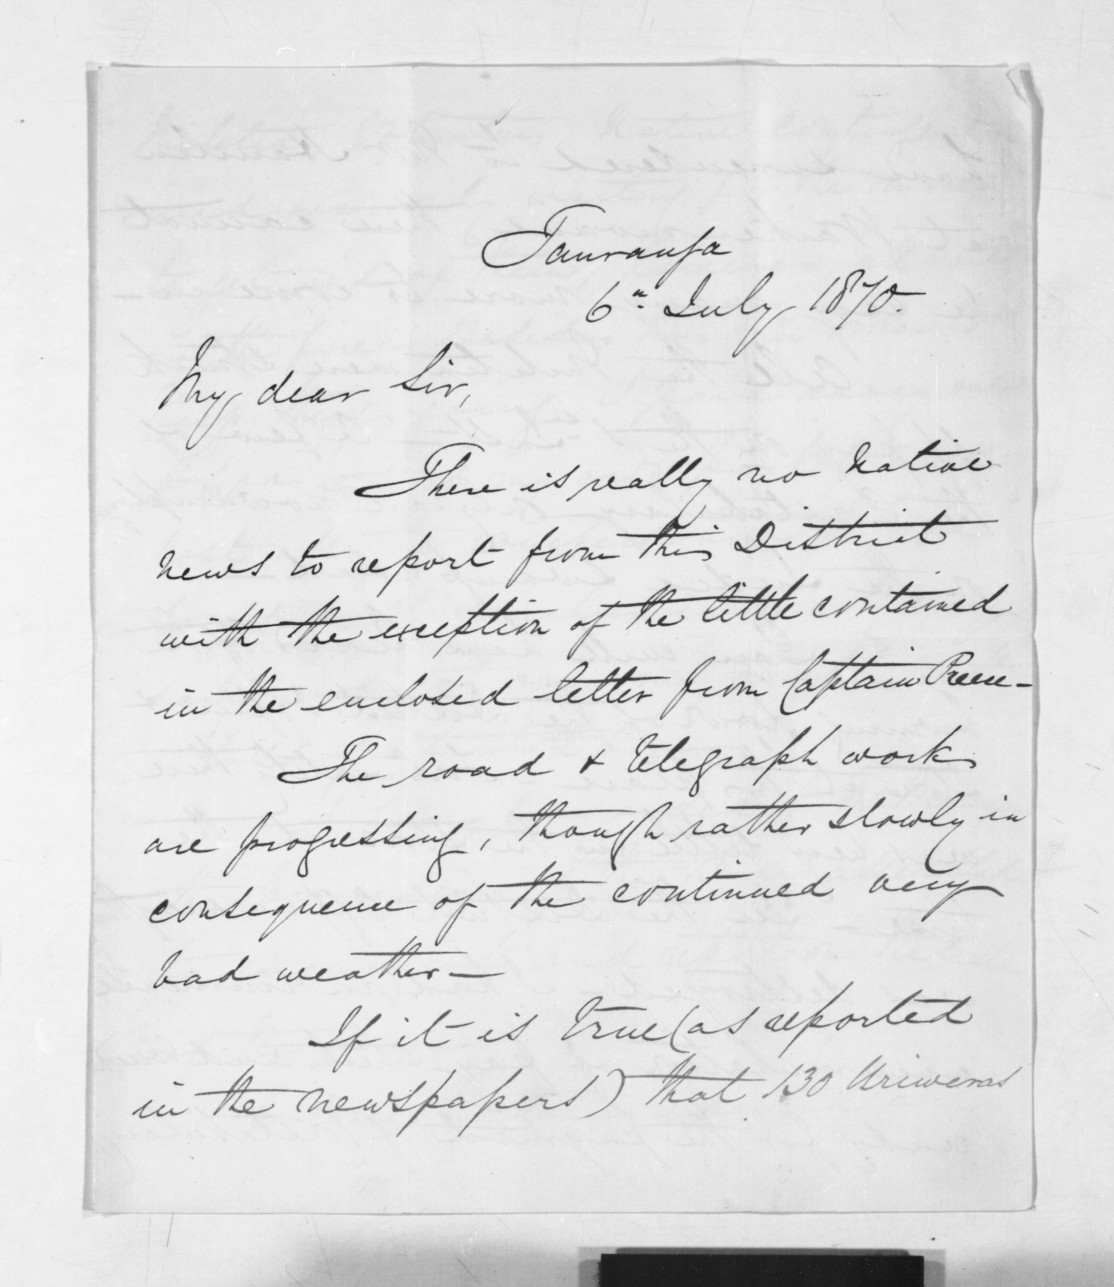 Tauranga
6th July 1870.
My dear Sir,
There is really no native
news to report from this District
with the exception of the little contained
in the enclosed letter from Captain Preece -
The road & telegraph work
are progressing, though rather slowly in
consequence of the continued very
bad weather -
If it is true (as reported
in the newspapers) that 130 Uriweras